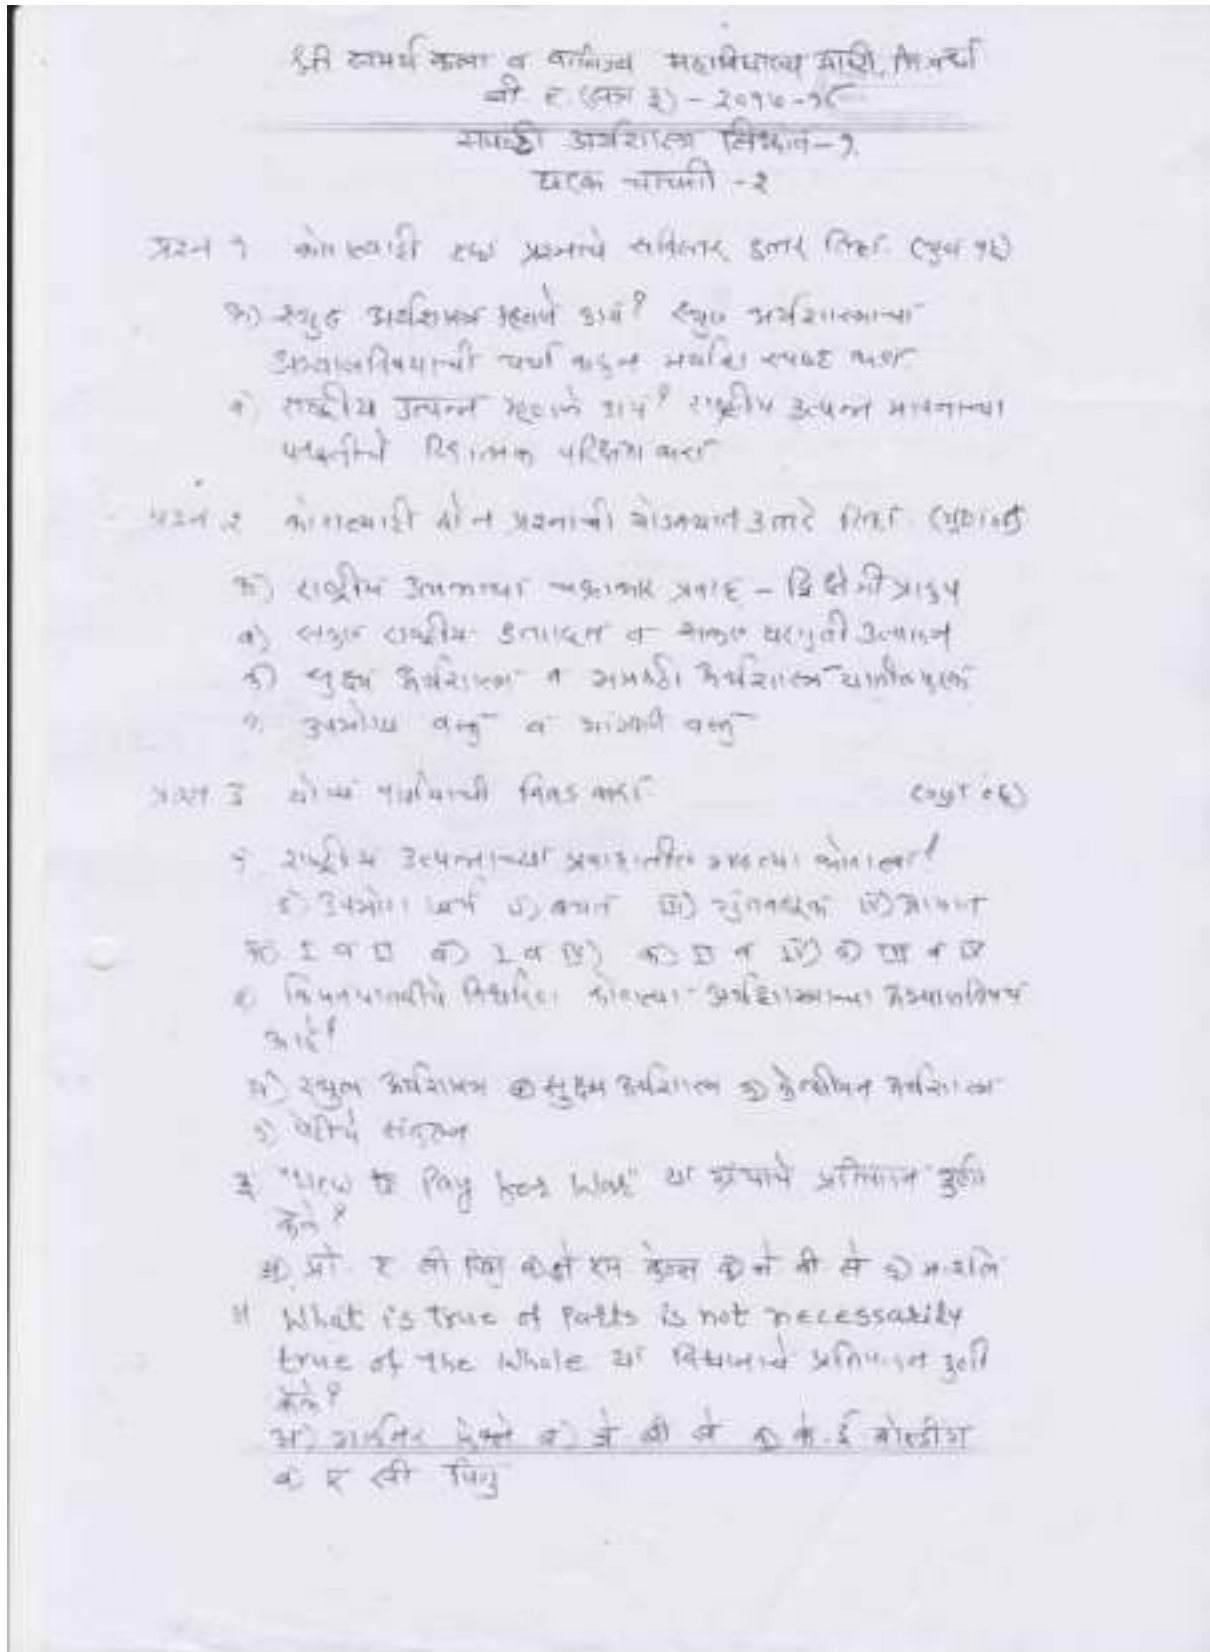 श्री समर्थ कला व वाणिज्य महाविद्यालय
बी ए (सत्र ३) - २०१७-१८
समष्टी अर्थशास्त्र सिध्दांत - १
घटक चाचणी - १
प्रश्न १ कोणत्याही एका प्रश्नाचे सविस्तर उत्तर लिहा. (गुण १६)
अ) स्थुल अर्थशास्त्र म्हणजे काय? स्थुल अर्थशास्त्राच्या
अभ्यासविषयाची चर्चा करून मर्यादा स्पष्ट करा
ब) राष्ट्रीय उत्पन्न म्हणजे काय? राष्ट्रीय उत्पन्न मापनाच्या
पध्दतीचे टिकात्मक परिक्षण करा
प्रश्न २ कोणत्याही दोन प्रश्नाची थोडक्यात उत्तरे लिहा.
अ) राष्ट्रीय उत्पन्नाचा चक्राकार प्रवाह - द्विक्षेत्रीप्रारुप
ब) सकल राष्ट्रीय उत्पादन व सकल घरगुती उत्पादन
क) सुक्ष्म अर्थशास्त्र व समष्टी अर्थशास्त्र यातील फरक
उपभोग्य वस्तु व भांडवली वस्तु
प्रश्न ३ योग्य पर्यायाची निवड करा (गुण ०६)
१ राष्ट्रीय उत्पन्नाच्या प्रवाहातील गळत्या कोणत्या?
I) उपभोग खर्च II) बचत III) गुंतवणुक IV) आयात
अ) I व II ब) I व IV) क) II व IV) ड) III व IV
२ किंमतपातळीचे निर्धारण कोणत्या अर्थशास्त्राच्या अभ्यासविषय
आहे?
अ) स्थुल अर्थशास्त्र ब) सुक्ष्म अर्थशास्त्र क) केन्सीयन अर्थशास्त्र
३ "How to Pay for War" या ग्रंथाचे प्रतिपादन कुणी
केले?
अ) प्रो. ए सी पिगु ब) जे एम केन्स क) जे बी से ड) मार्शल
४ What is true of Parts is not necessarily
true of the Whole या विधानाचे प्रतिपादन कुणी
केले?
अ) गार्डनर ॲक्ले ब) जे बी से क) के. ई बोल्डींग
ड) ए सी पिगु